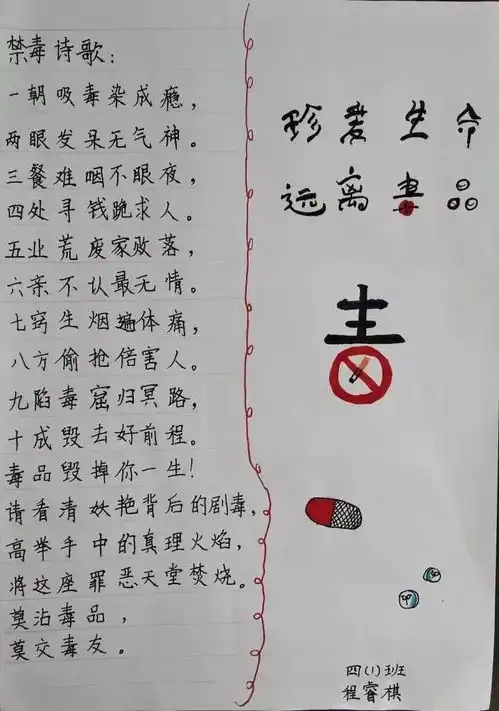 禁毒诗歌:
一朝吸毒染成瘾,
两眼发呆无气神。
三餐难咽不眼夜,
四处寻钱跪求人。
五业荒废家败落,
六亲不认最无情。
七窍生烟遍体痛,
八方偷抢倍害人。
九陷毒窟归冥路,
十成毁去好前程。
毒品毁掉你一生!
请看清妖艳背后的剧毒,
高举手中的真理火焰,
将这座罪恶天堂焚烧。
莫沾毒品,
莫交毒友。
珍爱生命
远离毒品
毒
四(1)班
程睿棋